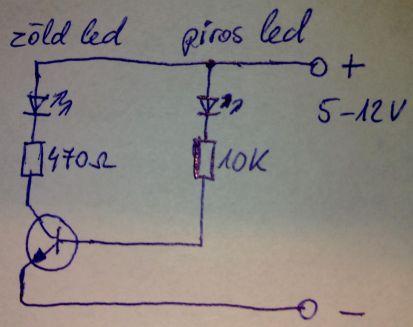 zöld led
piros led
+
5-12V
470Ω
10K
-